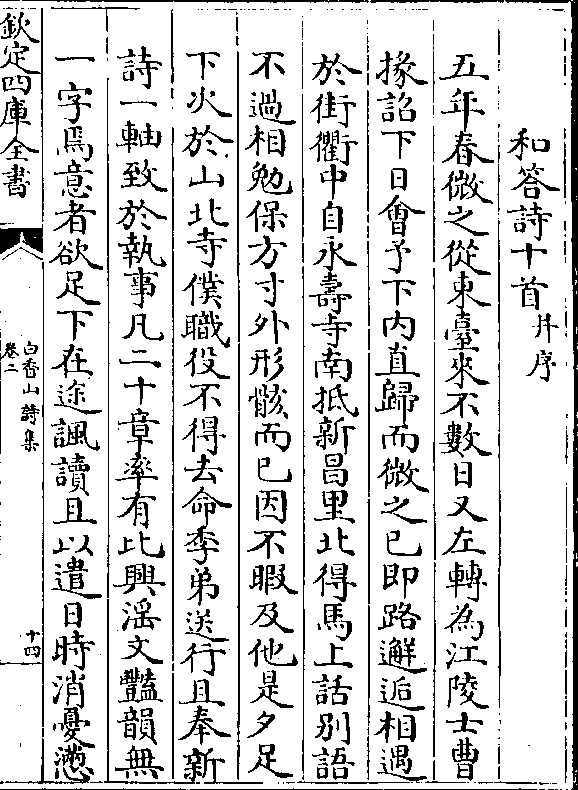 和答詩十首并序
五年春微之從東臺來不數日又左轉為江陵士曹
掾詔下日會予下內直歸而微之已即路邂逅相遇
於街衢中自永壽寺南抵新昌里北得馬上話别語
不過相勉保方寸外形骸而已因不暇及他是夕足
下次於山北寺僕職役不得去命季弟送行且奉新
詩一軸致於執事凡二十章率有比興淫文豔韻無
一字焉意者欲足下在途諷讀且以遣日時消憂懣
欽定四庫全書
白香山詩集
卷二
十四